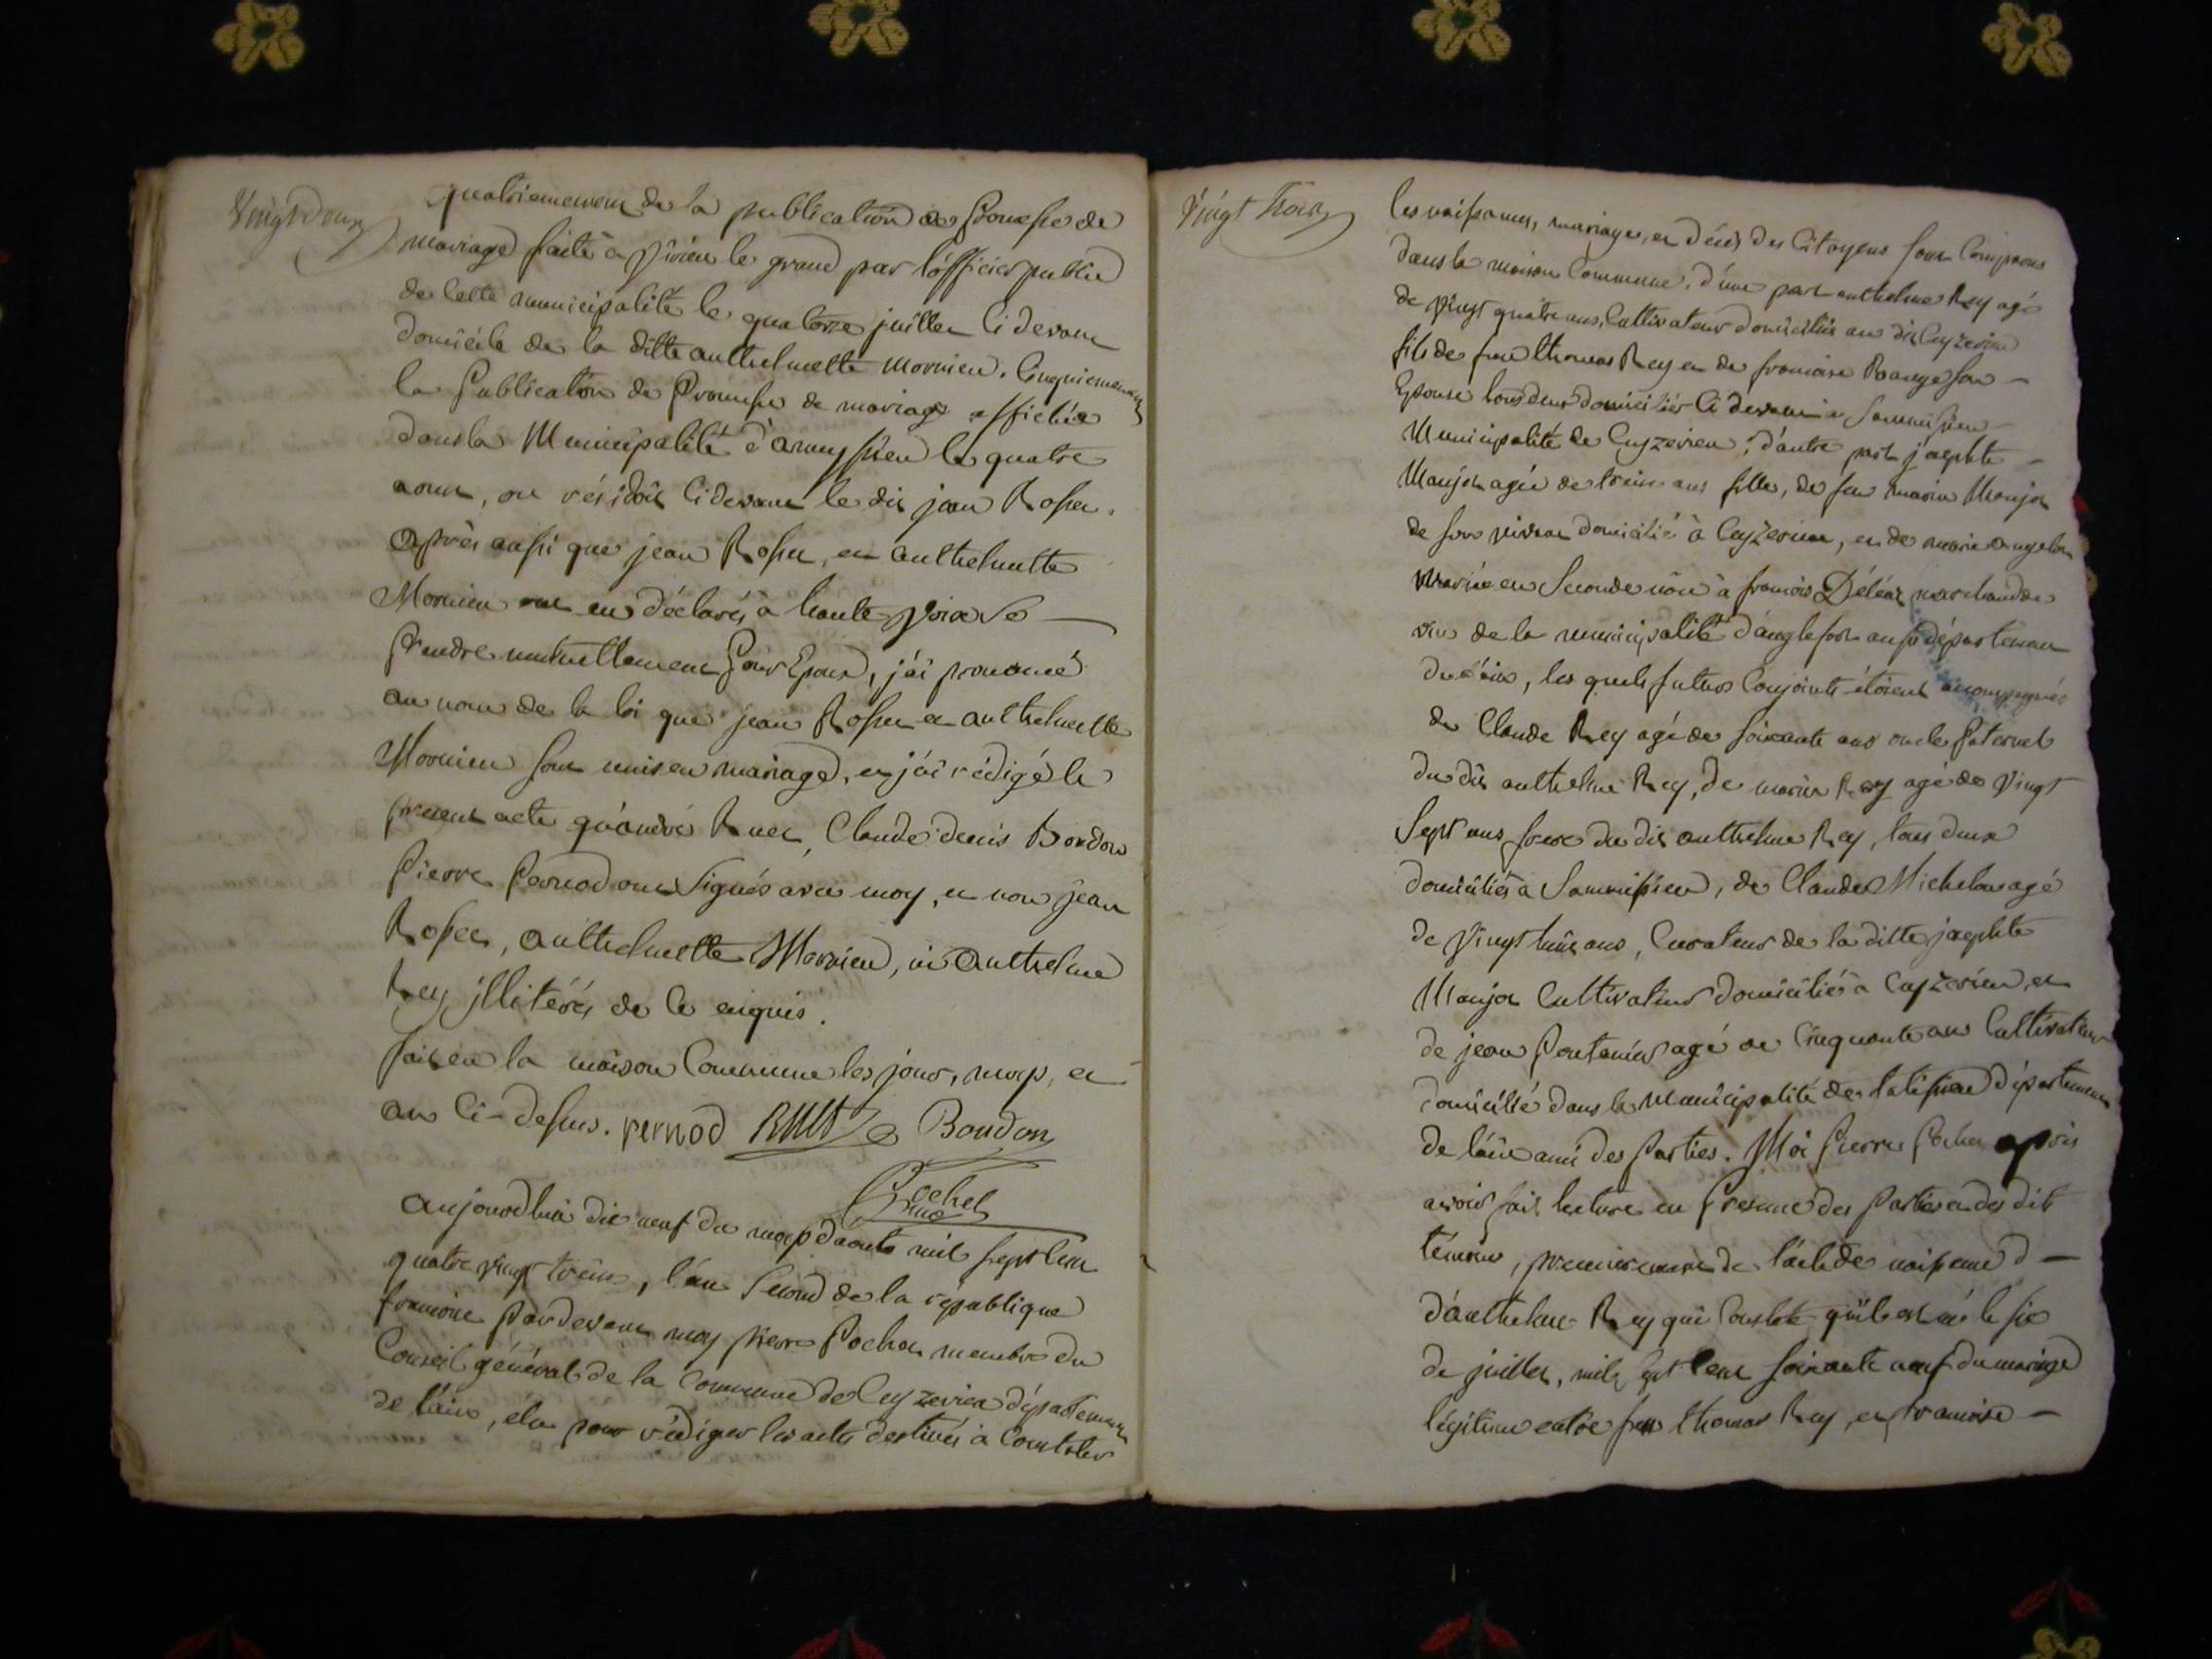 Vingt Deux
quatriemement de la publication de Promesse de
mariage faite à virieu le grand par l'officier public
de cette municipalité le quatorze juillet ci devant
domicile de la ditte anthelmette mornieu. Cinquiemement
la Publication de Promesse de mariage affichée
dans la Municipalité d'armyssieu le quatre
aout, ou résidoit ci devant le dit jean Rosset.
après aussi que jean Rosset et anthelmette
Mornieu ont eu déclarés à haute voix se
Prendre mutuellement Pour Epoux, j'ái prononcé
au nom de la loi que jean Rosset et anthelmette
Mornieu sont unis en mariage, et j'ái rédigé le
present acte qu'andré Ruet, Claude denis Bordon
Pierre Pernod ont Signés avec moy, et non jean
Rosset, anthelmette Mornieu, ni anthelme
Rey illiterés de ce enquis.
fait en la maison Commune les jour, moys, et
an Ci-dessus. pernod Ruet Bondon
Pochet
aujourdhui dix neuf du moys d'aoute mil sept cent
quatre vingt treize, l'an Second de la république
francoise Pardevant moy pierre Pochet membre du
Conseil général de la Commune de Cuyzerieu département
de l'ain, élu pour rédiger les actes destinés à Constater
Vingt Trois
les naissances, mariages, et décés des Citoyens sont Comparus
dans la maison Commune, d'une part anthelme Rey agé
de vingt quatre ans, Cultivateur domicilié au dit Cuyzerieu
fils de feu thomas Rey et de francoise son
Epouse tous deux domiciliés Ci devant a Sammissieu
Municipalité de Cuyzerieu; d'autre part jaqueline
Manjot agée de treize ans fille, de feu marin Manjot
de son vivant domicilié à Cuyzerieu, et de marie
Mariée en Seconde noce à francois marchand de
de la municipalité d'anglefort aussi département
de l'ain, les quels futurs Conjoints étoient accompagnés
de Claude Rey agé de soixante ans oncle Paternel
du dit anthelme Rey, de marin Rey agé de Vingt
Sept ans frere du dit anthelme Rey, tous deux
domiciliés a Sammissieu, de Claude Michelon agé
de Vingt huit ans, Curateur de la ditte
Manjot Cultivateur domicilié à Cuyzerieu, et
de jean agé de Cinquante ans Cultivateur
domicilié dans la municipalité de talissieu département
de l'ain ami des Parties. Moi Pierre Pochet après
avoir fait lecture en Presence des Parties et des dits
témoins, premierement de l'acte de naissance
d'anthelme Rey qui Constate qu'il est né le six
de juillet, mil sept cent soixante neuf du mariage
légitime entre feu thomas Rey, et francoise